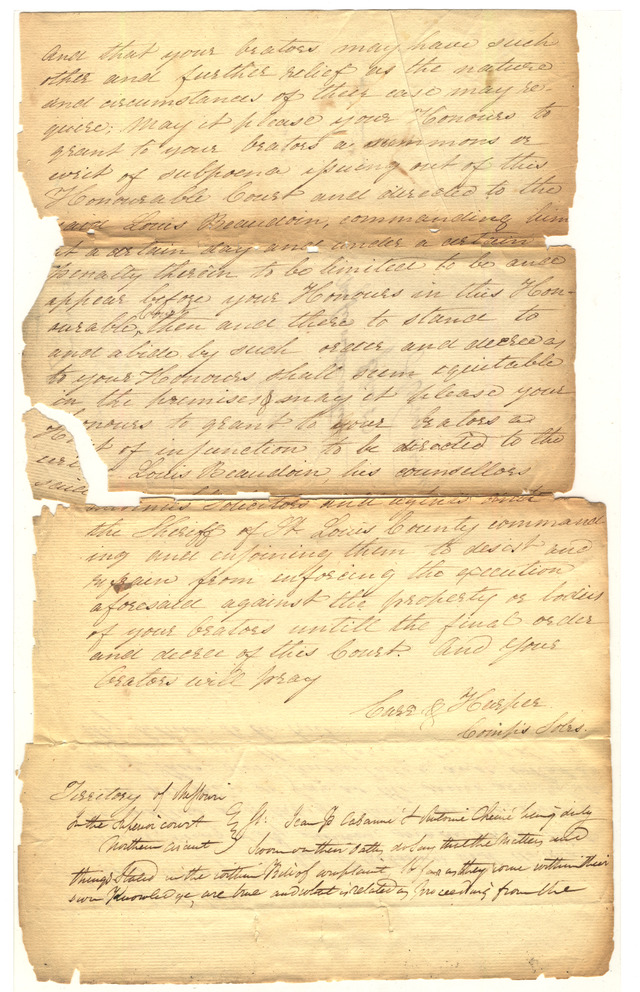 and that your orators may have such
other and further relief as the nature
and circumstances of their case may re-
quire; May it please your Honours to
grant to your orators a summons or
writ of subpoena issuing out of this
Honourable Court and directed to the
said Louis Beaudoin, commanding him
at a certain day and under a certain
penalty therein to be limited to be and
appear before your Honours in this Hon-
ourable Court then and there to stand to
and abide by such order and decree as
to your Honours shall seem equitable
in the premises & may it please your
Honours to grant to your orators a
writ of injunction to be directed to the
said Louis Beaudoin, his counsellors
solicitors and agents and
the Sheriff of St Louis County command
ing and enjoining them to desist and
refrain from enforcing the execution
aforesaid against the property or bodies
of your orators untill the final order
and decree of this Court. And your
orators will pray
Carr & Harper
Compts Solrs.
Territory of Missouri
In the Superior court Sst: Jean P. Cabanné & Antoine Chenié being duly
Northern circuit Sworn on their oaths, do say that the matters and
things Stated in the within Bill of complaint, so far as they come within their
own Knowledge, are true and what is related as proceeding from the